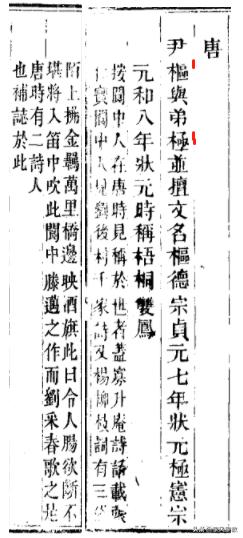 唐
尹樞與弟極並擅文名樞德宗貞元七年狀元極憲宗
元和八年狀元時稱梧桐雙鳳
按閬中人在唐時見稱於世者蓋寡升庵詩話載滕
閬中人見劉後村千家詩又楊柳枝詞有三條
陌上拂金羈萬里橋邊映酒旗此日令人腸欲斷不
堪將入笛中吹此閬中滕邁之作而劉采春歌之是
唐時有二詩人
也補誌於此